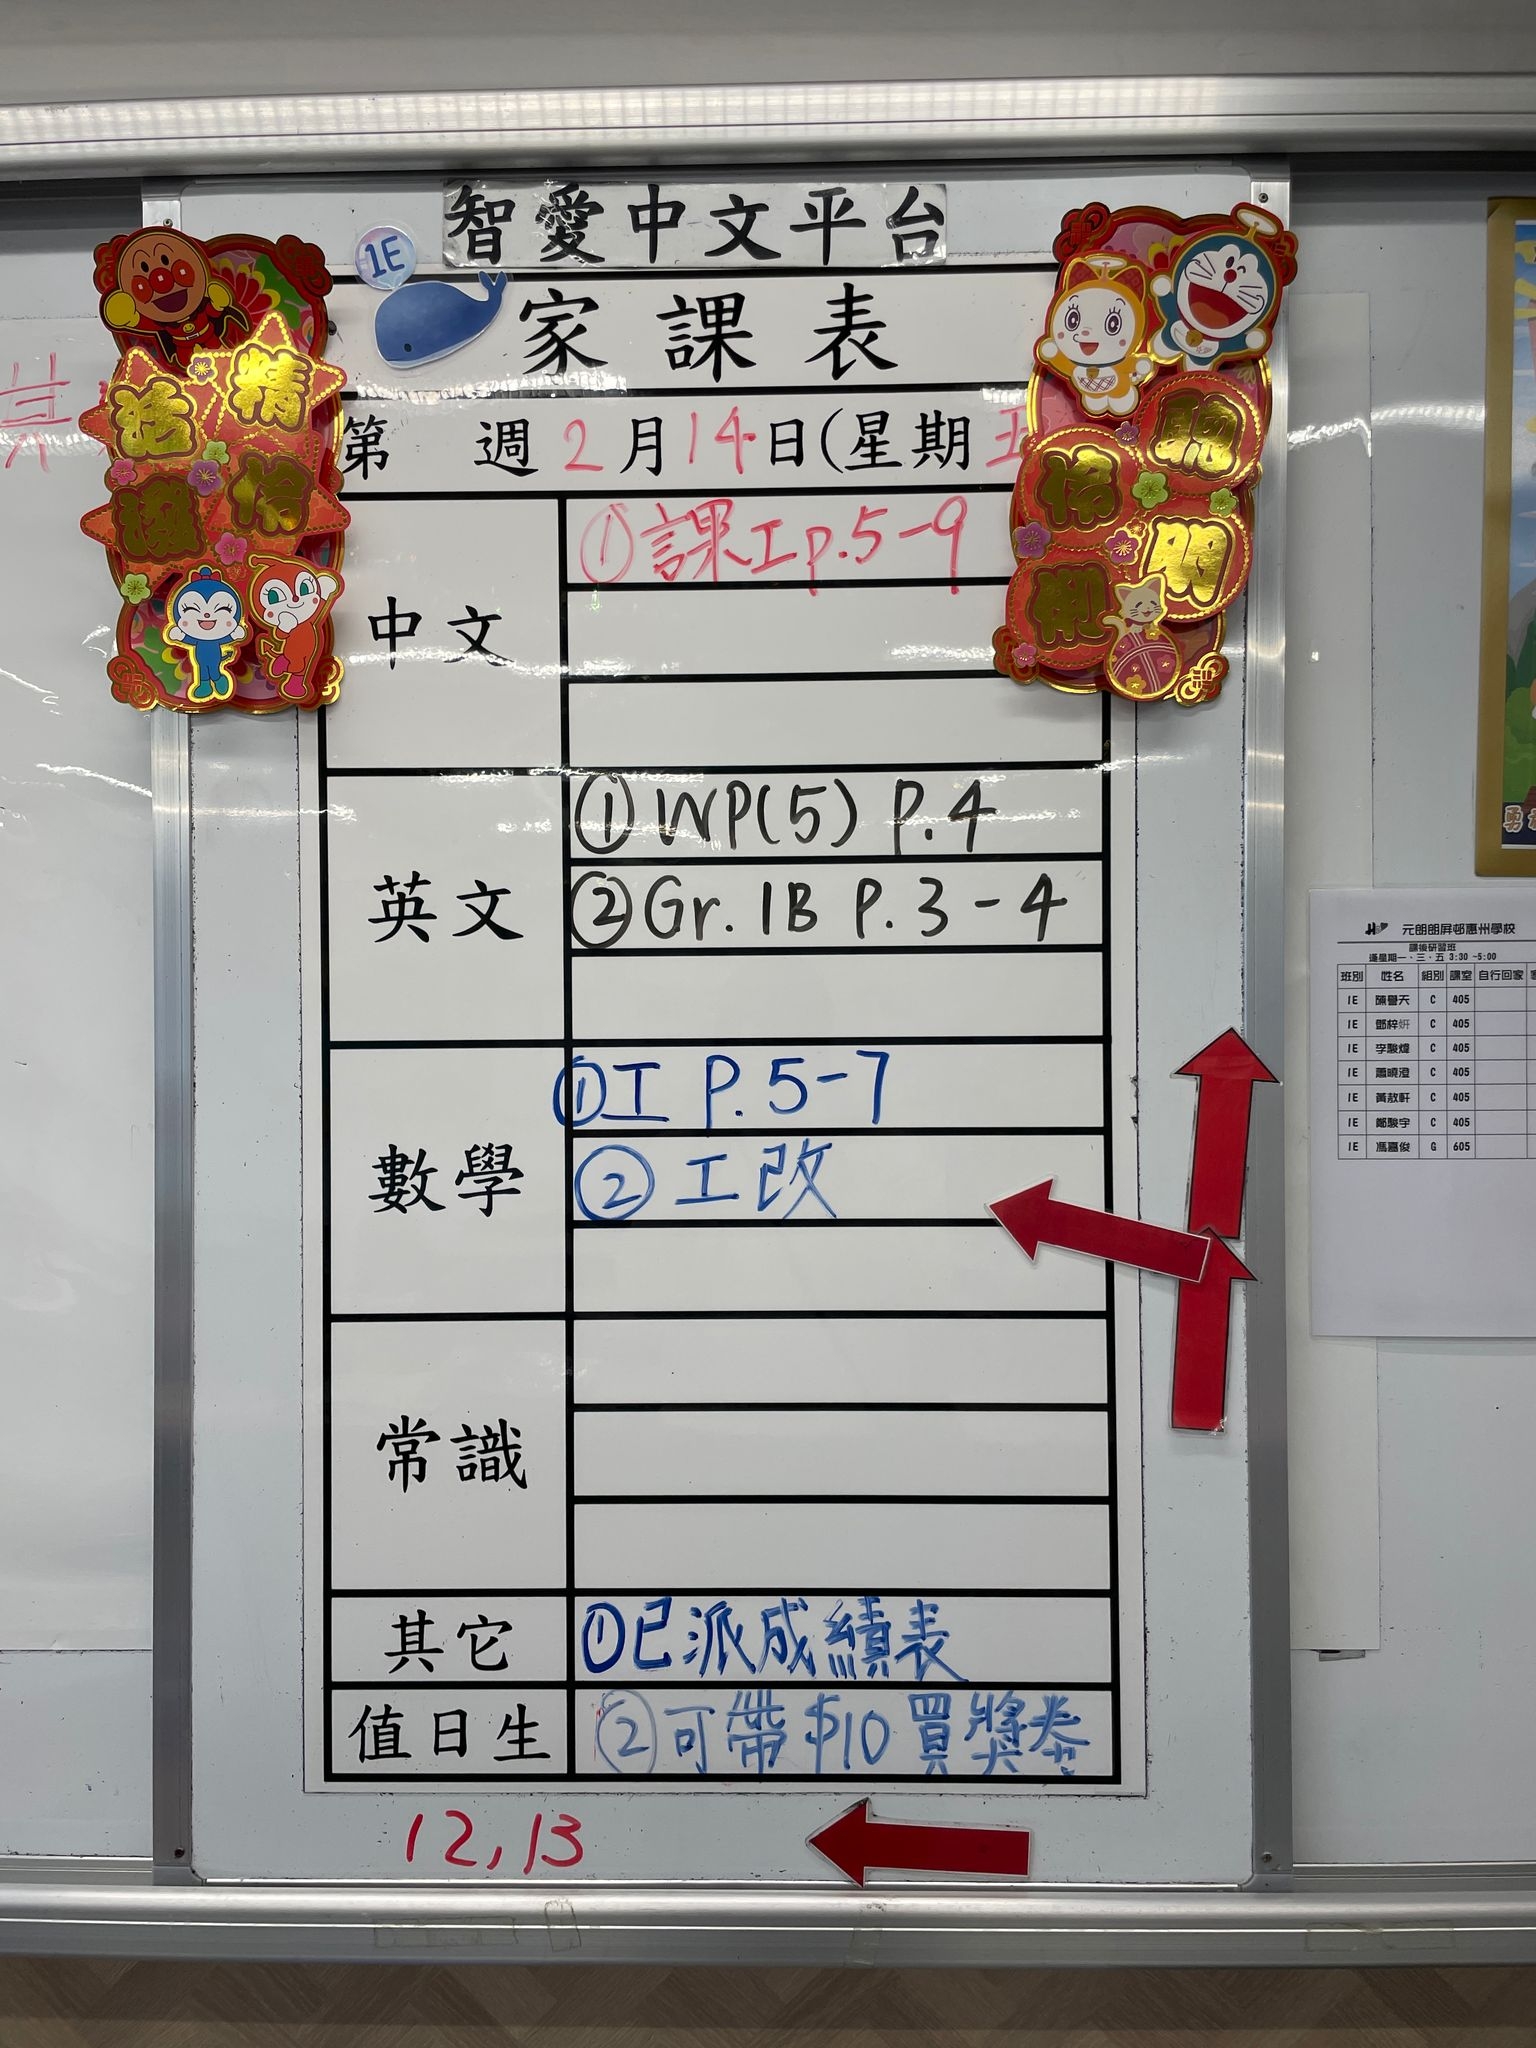 智愛中文平台
1E
家課表
第 週 2月14日(星期五
精
活
伶
潑
聰
伶
明
俐
中文
①課工p.5-9
英文
①WP(5) P.4
②Gr. 1B P.3-4
數學
①工 P.5-7
②工改
常識
其它
①已派成績表
值日生
②可帶$10買獎券
12,13
元朗朗屏邨惠州學校
課後研習班
逢星期一、三、五 3:30 ~5:00
班別 姓名 組別 課室 自行回家
1E 陳譽天 C 405
1E 鄧梓妍 C 405
1E 李駿煒 C 405
1E 蕭曉澄 C 405
1E 黃敖軒 C 405
1E 鄭駿宇 C 405
1E 馮嘉俊 G 605
勇